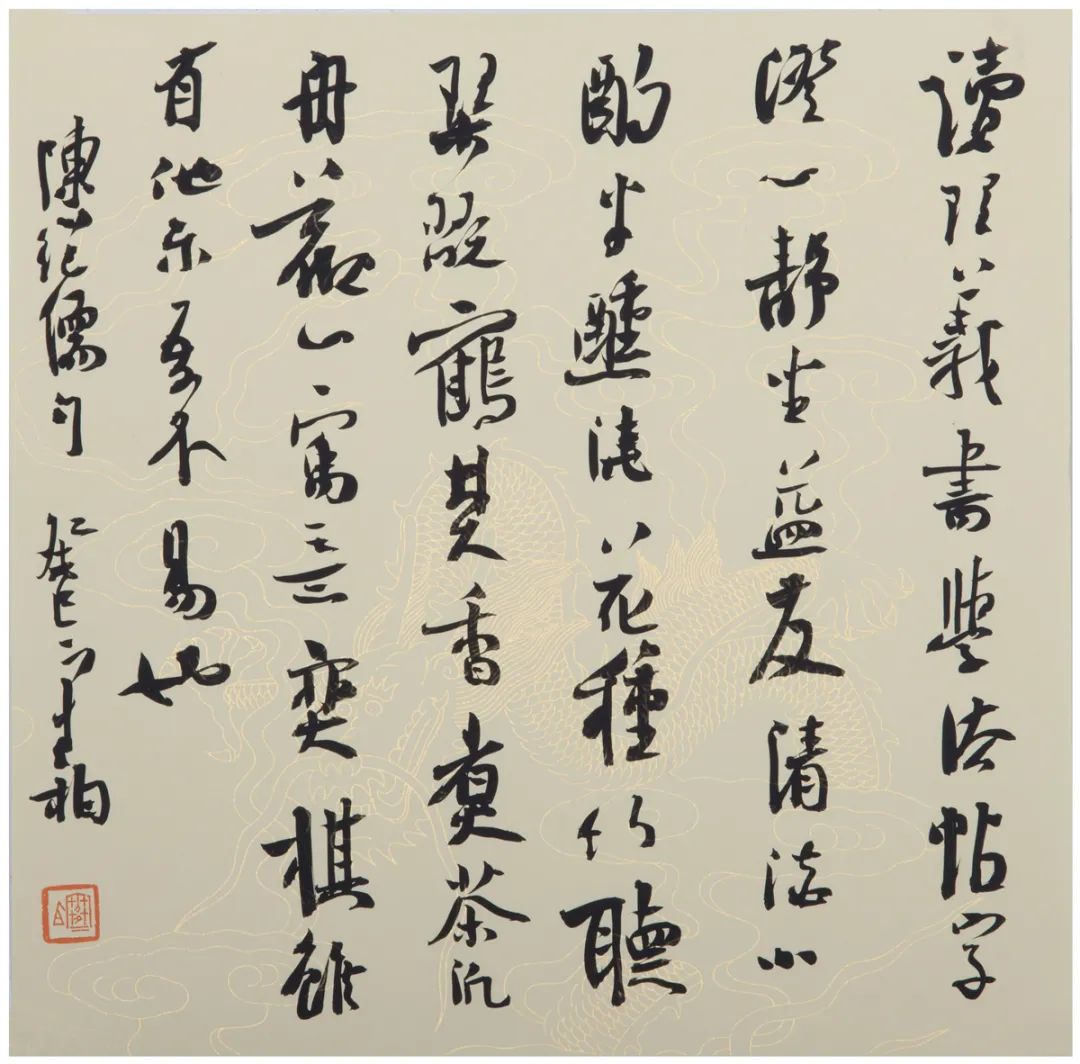 讀理義書學法帖字
澄心靜坐益友清談小
酌半醺澆花種竹聽
琴翫鶴焚香煮茶泛
舟觀山寓意奕棋雖
有他樂吾不易也
陳繼儒句 癸巳